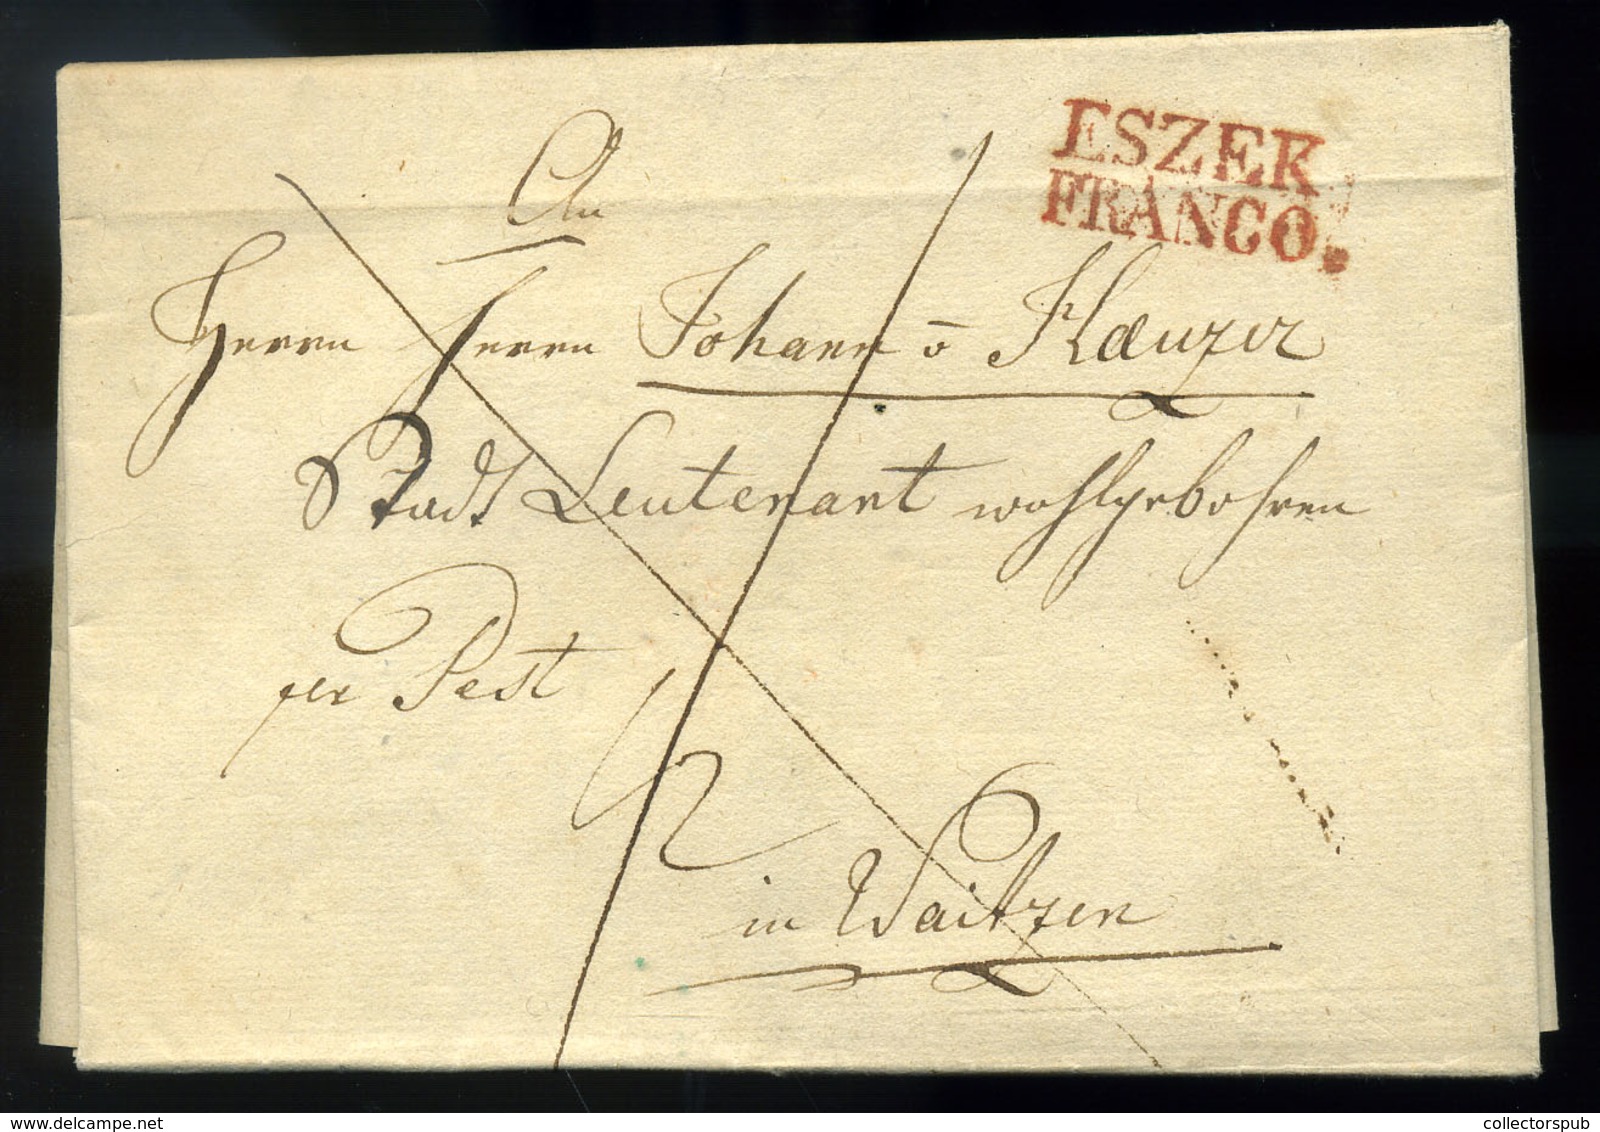 ESZEK
FRANCO.
An
Herrn Herrn Johann v Klæuzer
Stadt Leutenant wohlgebohren
per Pest
in Waitzen
delcampe.net
collectorspub